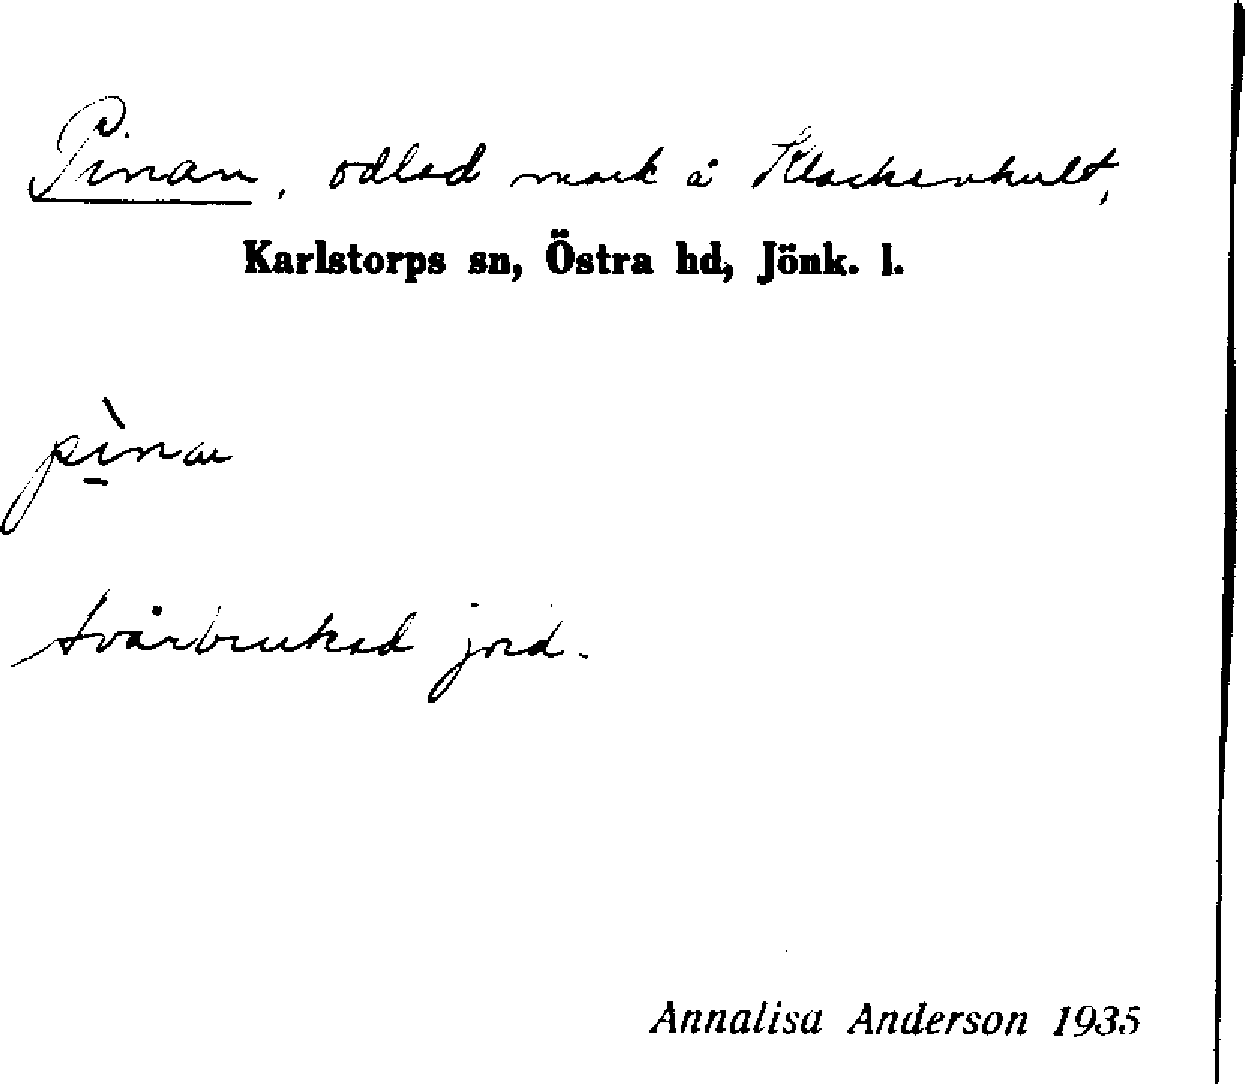 Pinan, odlad mark å Klackenhult,
Karlstorps sn, Östra hd, Jönk. l.
pı̀nar
svårbrukad jord.
Annalisa Anderson 1935